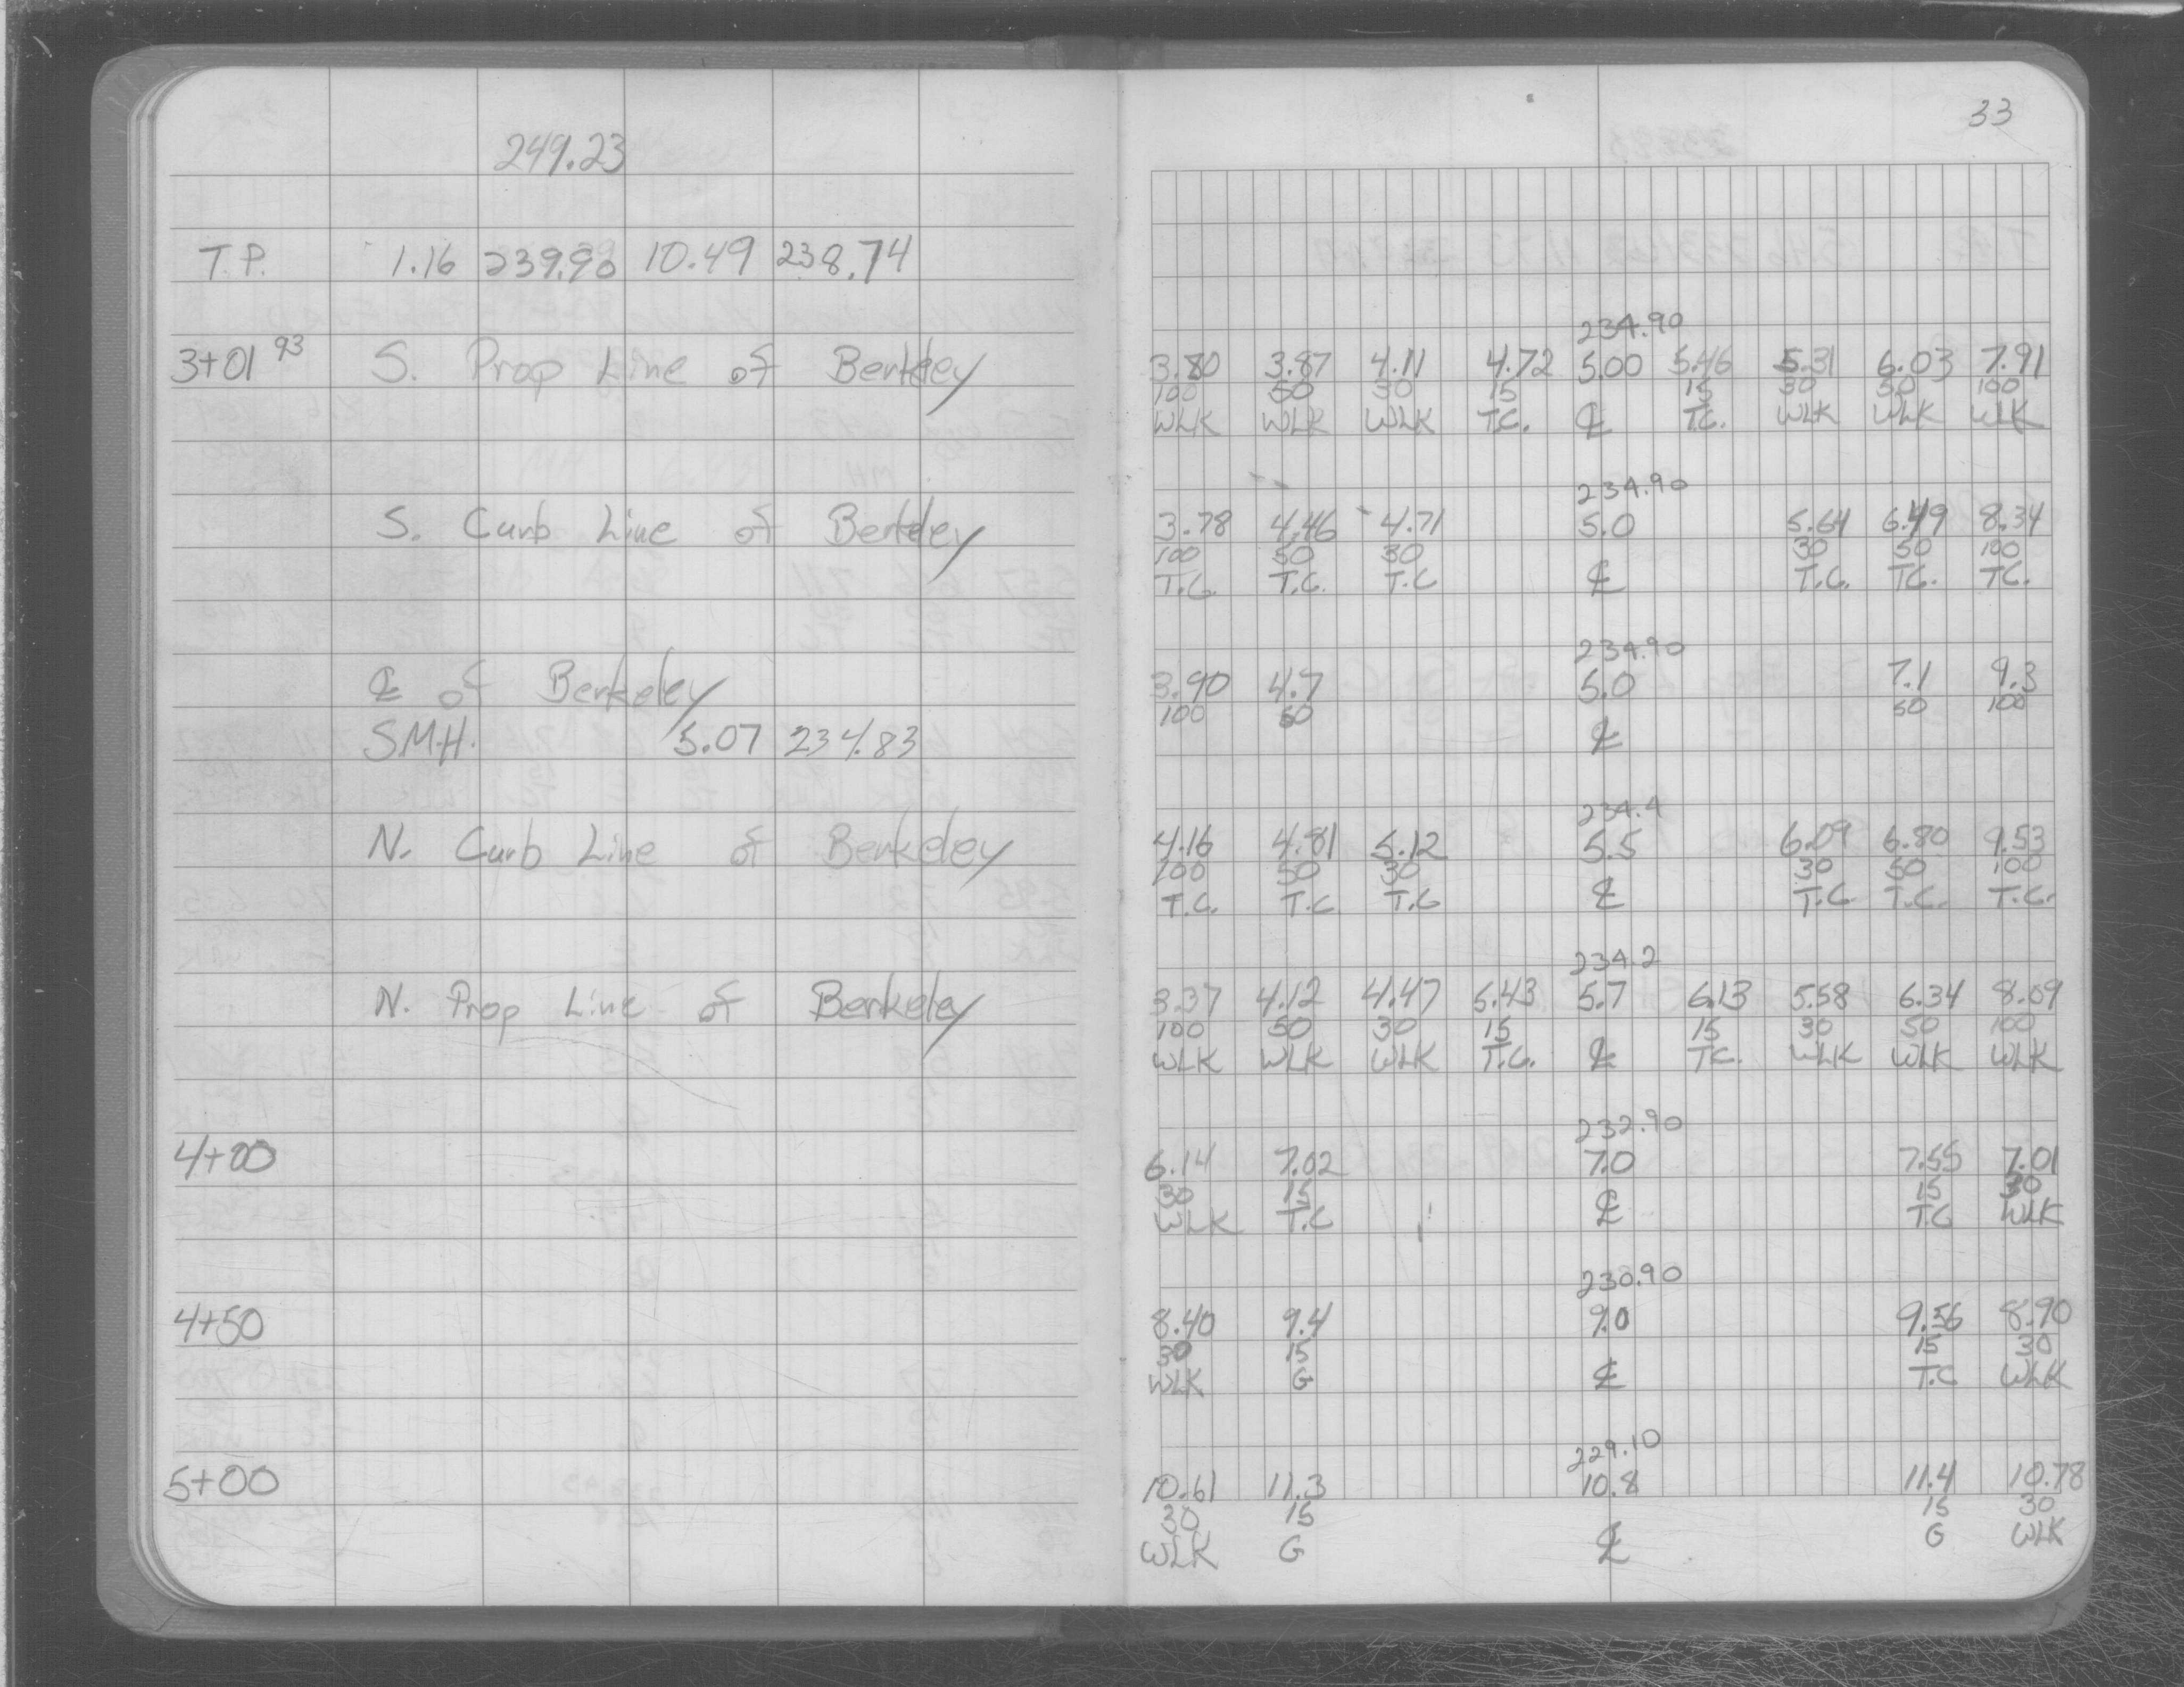 249.23
T.P. 1.16 239.90 10.49 238.74
3+01 93 S. Prop Line of Berkeley
S. Curb Line of Berkeley
℄ of Berkeley
S.M.H. 5.07 234.83
N. Curb Line of Berkeley
N. Prop Line of Berkeley
4+00
4+50
5+00
33
234.90
3.80 3.87 4.11 4.72 5.00 5.46 5.31 6.03 7.91
100 50 30 15 15 30 50 100
WLK WLK WLK T.C. ℄ T.C. WLK WLK WLK
234.90
3.78 4.46 4.71 5.0 5.64 6.49 8.34
100 50 30 30 50 100
T.C. T.C. T.C ℄ T.C. T.C. T.C.
234.90
3.90 4.7 5.0 7.1 9.3
100 50 50 100
℄
234.4
4.16 4.81 5.12 5.5 6.09 6.80 9.53
100 50 30 30 50 100
T.C. T.C T.C ℄ T.C. T.C. T.C.
234.2
3.37 4.12 4.47 5.43 5.7 6.13 5.58 6.34 8.09
100 50 30 15 15 30 50 100
WLK WLK WLK T.C. ℄ T.C. WLK WLK WLK
232.90
6.14 7.02 7.0 7.55 7.01
30 15 15 30
WLK T.C ℄ T.C WLK
230.90
8.40 9.4 9.0 9.56 8.90
30 15 15 30
WLK G ℄ T.C WLK
229.10
10.61 11.3 10.8 11.4 10.78
30 15 15 30
WLK G ℄ G WLK